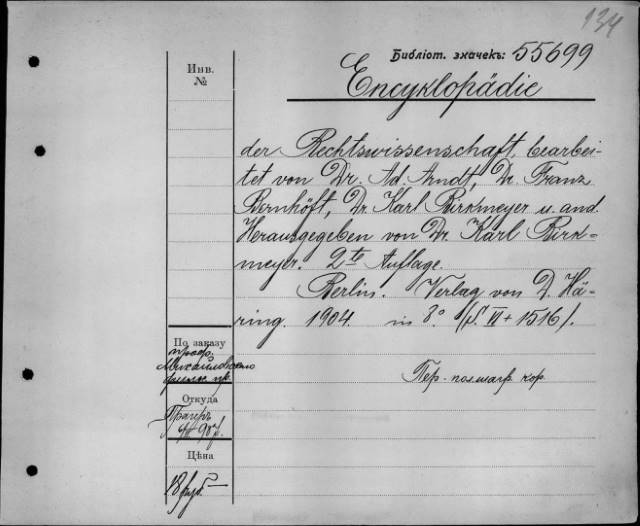 134
Библіот. значекъ: 55699
Инв.
№
Encyklopädie
der Rechtswissenschaft, bearbei-
tet von Dr. Ad. Arndt, Dr. Franz
Bernhöft, Dr Karl Birkmeyer u. and.
Herausgegeben von Dr. Karl Birk-
meyer. 2te Auflage.
Berlin. Verlag von O. Hä-
ring. 1904. in 8° (S. VI + 1516).
По заказу
проф.
Михайловскаго
Пер. полшагр. кор.
Откуда
Прагеръ
Цѣна
18 руб.